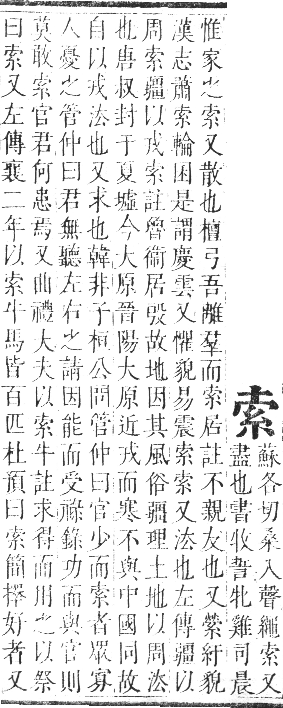 索蘇各切桑入聲繩索又
盡也書牧誓牝雞司晨
惟家之索又散也檀弓吾離羣而索居註不親友也又縈紆貌
漢志蕭索輪囷是謂慶雲又懼貌易震索索又法也左傳疆以
周索疆以戎索註魯衞居殷故地因其風俗疆理土地以周法
也唐叔封于夏墟今大原晉陽大原近戎而寒不與中國同故
自以戎法也又求也韓非子桓公問管仲曰官少而索者眾寡
人憂之管仲曰君無聽左右之請因能而受祿錄功而與官則
莫敢索官君何患焉又曲禮大夫以索牛註求得而用之以祭
曰索又左傳襄二年以索牛馬皆百匹杜預曰索簡擇好者又